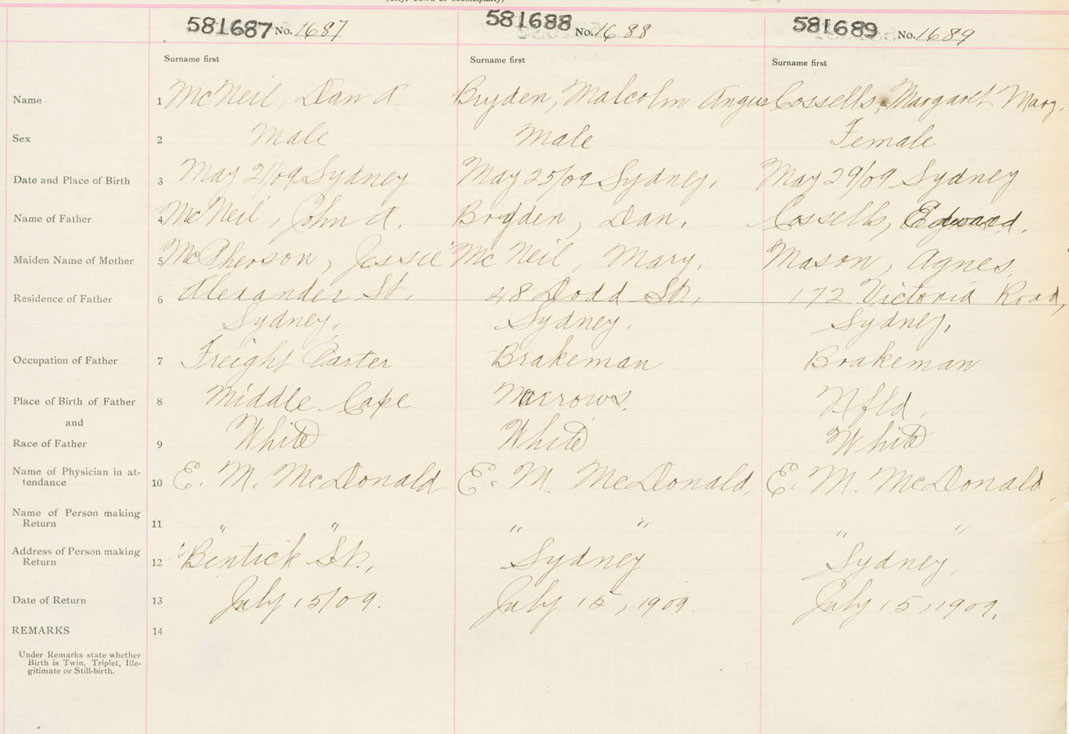 581687 No. 1687 581688 No. 1688 581689 No. 1689
Surname first Surname first Surname first
Name 1 McNeil, Dan A. Bryden, Malcolm Angus Cossells, Margaret Mary.
Sex 2 Male Male Female
Date and Place of Birth 3 May 21/09 Sydney May 25/09 Sydney. May 29/09 Sydney
Name of Father 4 McNeil, John A. Bryden, Dan. Cossells, Edward.
Maiden Name of Mother 5 McPherson, Jessie McNeil, Mary. Mason, Agnes.
Residence of Father 6 Alexander St. 48 Dodd St., 172 Victoria Road,
Sydney. Sydney. Sydney.
Occupation of Father 7 Freight Carter Brakeman Brakeman
Place of Birth of Father 8 Middle Cape Marrows. Nfld.
and
Race of Father 9 White White White
Name of Physician in at-
tendance 10 E. M. McDonald E. M. McDonald. E. M. McDonald.
Name of Person making
Return 11 " " " " " "
Address of Person making
Return 12 Bentick St., Sydney Sydney.
Date of Return 13 July 15/09. July 15, 1909. July 15, 1909.
REMARKS 14
Under Remarks state whether
Birth is Twin, Triplet, Ille-
gitimate or Still-birth.